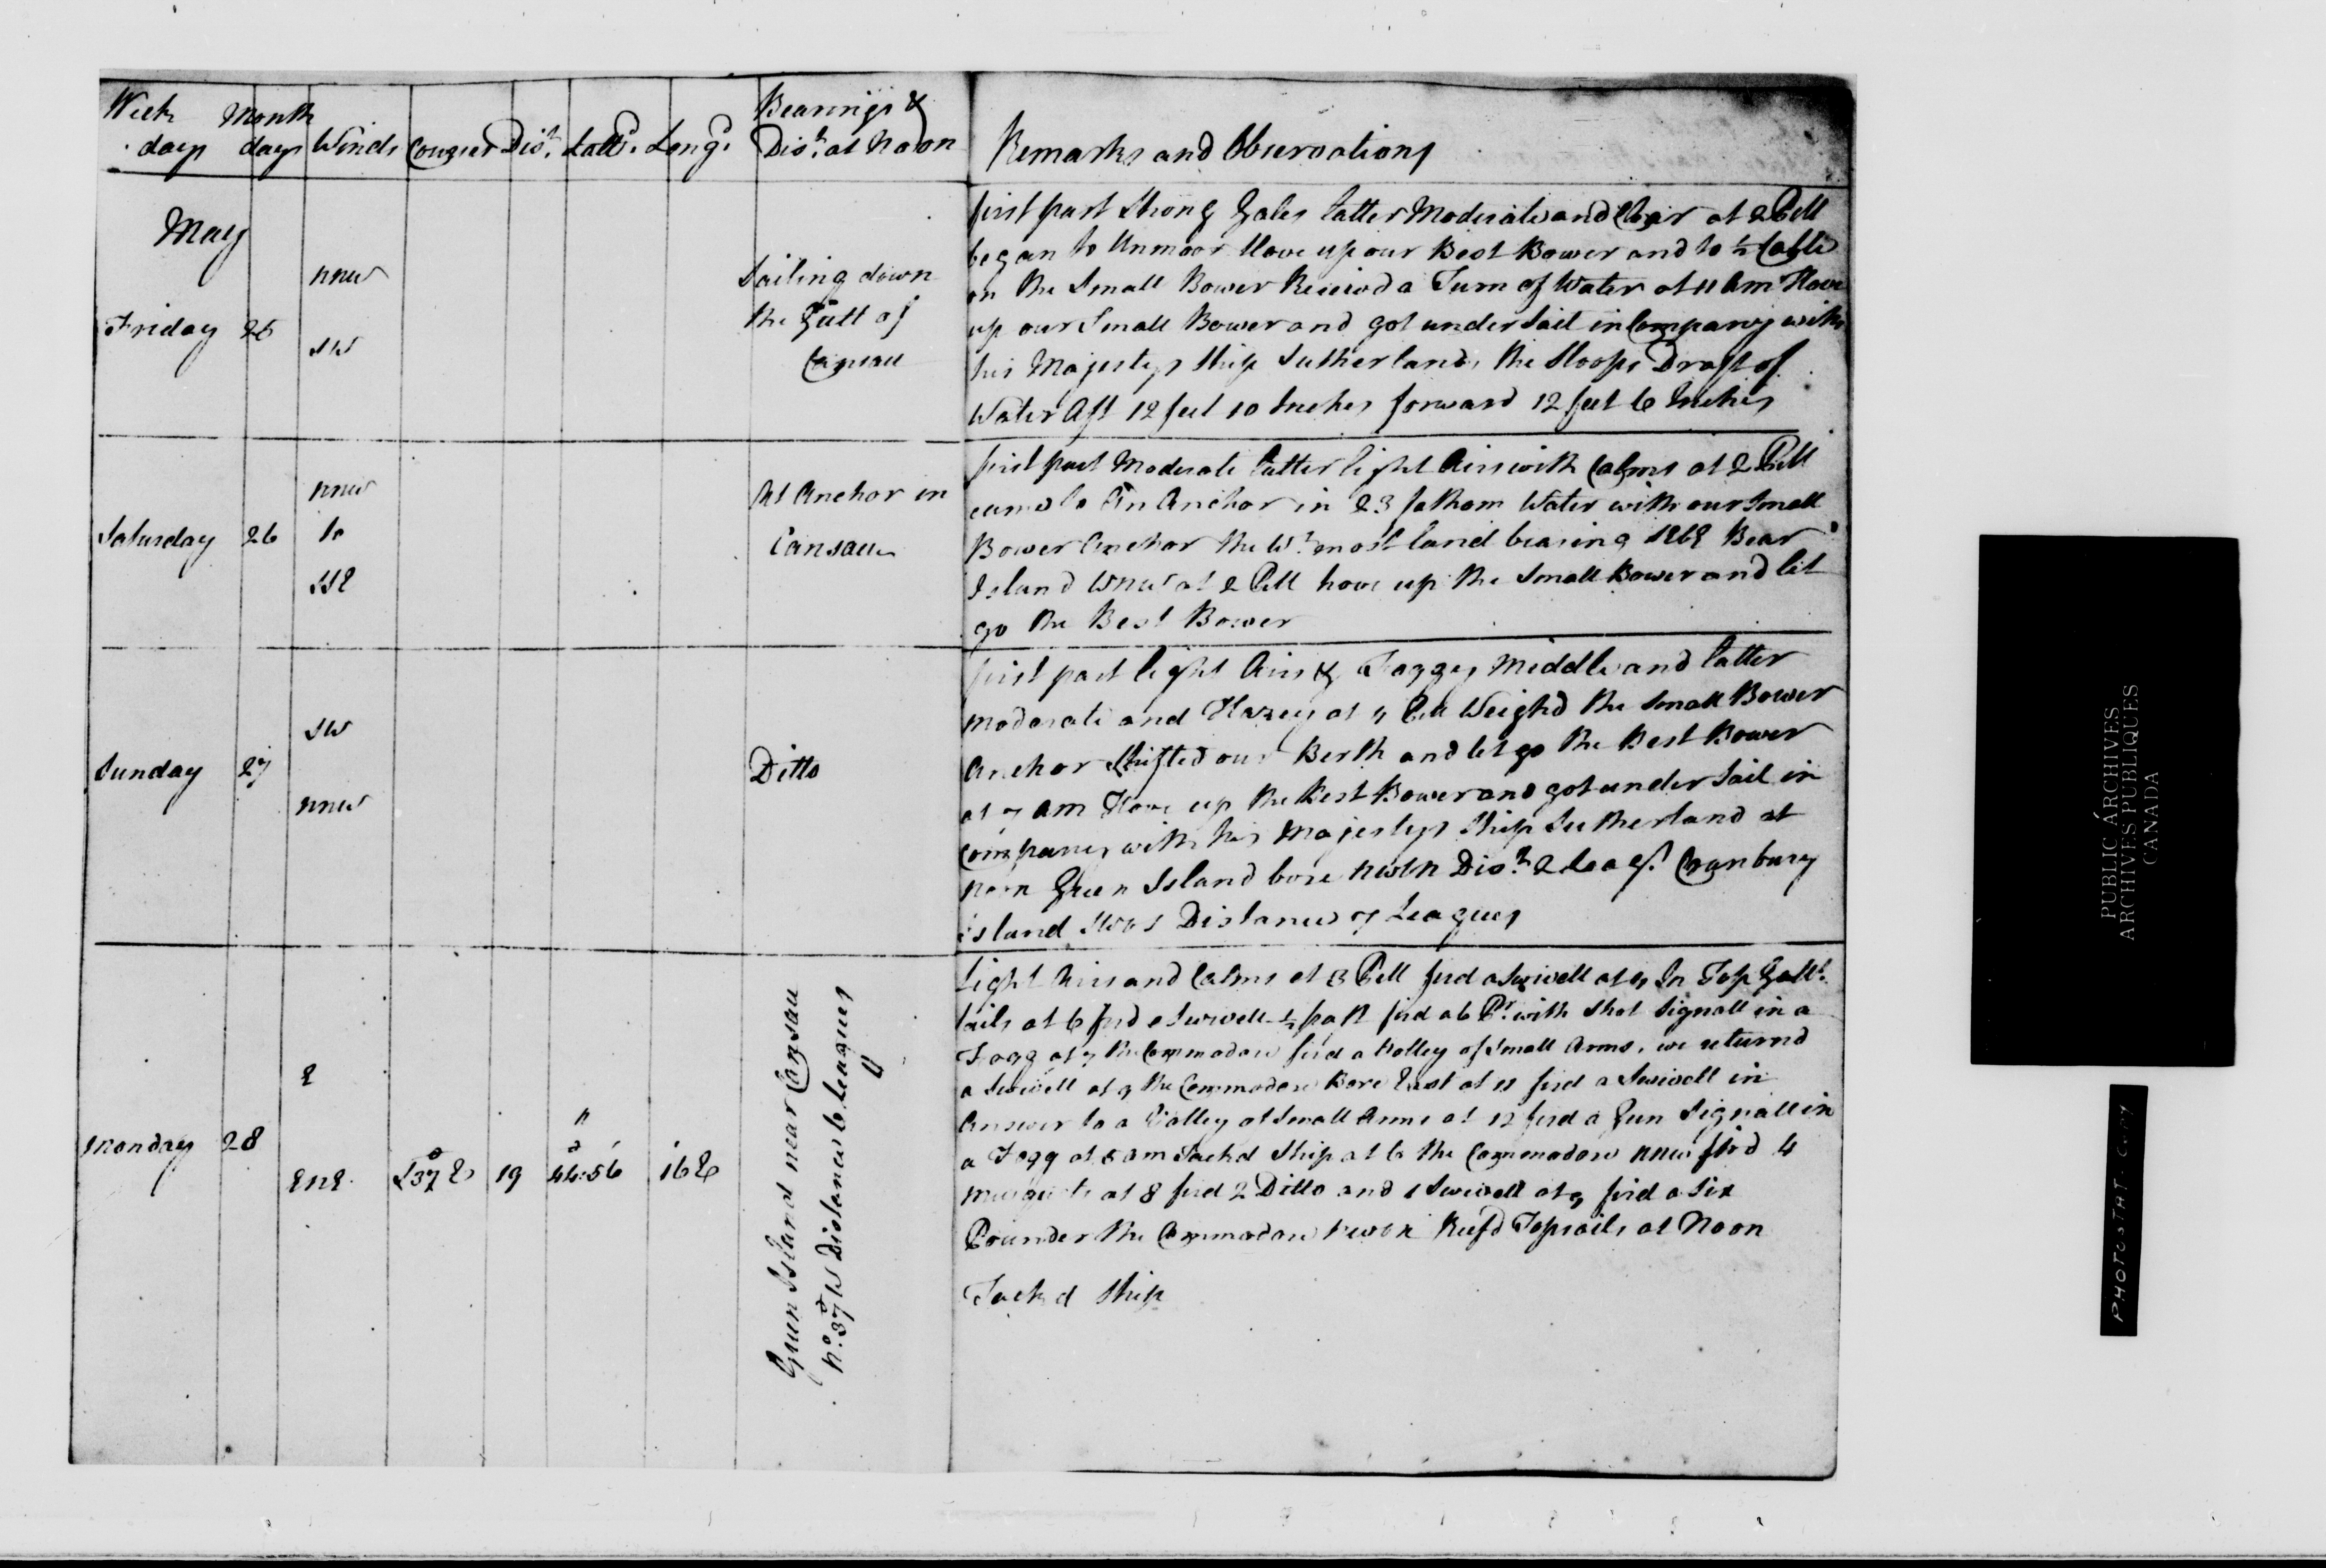 Week days Month days Winds Courses Dist. Latt.d Long.d Bearings & Dist. at Noon Remarks and Observations
May
Friday 25 nnw
sw
Sailing down
the Gutt of
Cansau
first part Strong Gales latter Moderate and Clear at 2 PM
began to Unmoor Hove up our Best Bower and to ½ Cable
on the Small Bower Receivd a Turn of Water at 11 Am Hove
up our Small Bower and got under Sail in Company with
his Majestys Ship Sutherland, the Sloops Draft of
Water Aft 12 feet 10 Inches forward 12 feet 6 Inches
Saturday 26 nnw
to
SSE
At Anchor in
Cansau
first part Moderate latter light Airs with Calms at 2 PM
came to An Anchor in 23 fathom Water with our Small
Bower Anchor the Wt most land bearing Bear
Island WNW at 2 PM hove up the Small Bower and let
go the Best Bower
Sunday 27 SW
nnw
Ditto
first part light Airs & Foggy Middle and latter
moderate and Hazey at PM Weighd the Small Bower
Anchor Shifted our Berth and let go the Best Bower
at 7 am Hove up the Best Bower and got under Sail in
Company with his Majestys Ship Sutherland at
noon Green Island bore NWbN Dist. 2 Leags. Cranbury
island Distance 7 Leagues
Monday 28 E
ENE
S37E 19 44:56 16E
Green Island near Cansau
No. 37 W Distance 6 Leagues
Light Airs and Calms at 3 PM fird a Swivell at In Top Gallt.
Sails at 6 fird a Swivell ½ past fird a 6 Pr. with Shot Signall in a
Fogg at 7 the Commodore fird a Volley of Small Arms, we returnd
a Swivell at 9 the Commodore Bore East at 11 fird a Swivell in
Answer to a Volley of Small Arms at 12 fird a Gun Signall in
a Fogg at 5 am Tackd Ship at 6 the Commodore nnw fird 4
Musquets at 8 fird 2 Ditto and 1 Swivell at 9 fird a Six
Pounder the Commodore Reefd Topsails at Noon
Tackd Ship
PUBLIC ARCHIVES
ARCHIVES PUBLIQUES
CANADA
PHOTOSTAT COPY